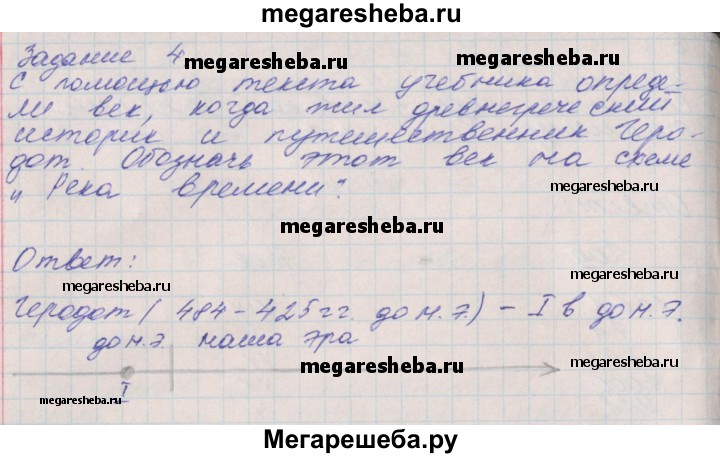 megaresheba.ru
Задание 4 megaresheba.ru megaresheba.ru
С помощью текста учебника опреде-
ли век, когда жил древнегреческий
историк и путешественник Геро-
дот. Обозначь этот век на схеме
"Река времени". megaresheba.ru
megaresheba.ru
Ответ:
megaresheba.ru
Геродот (484-425 гг. до н.э.) - I в до н.э.
до н.э. наша эра
megaresheba.ru
I
megaresheba.ru
Мегарешеба.ру